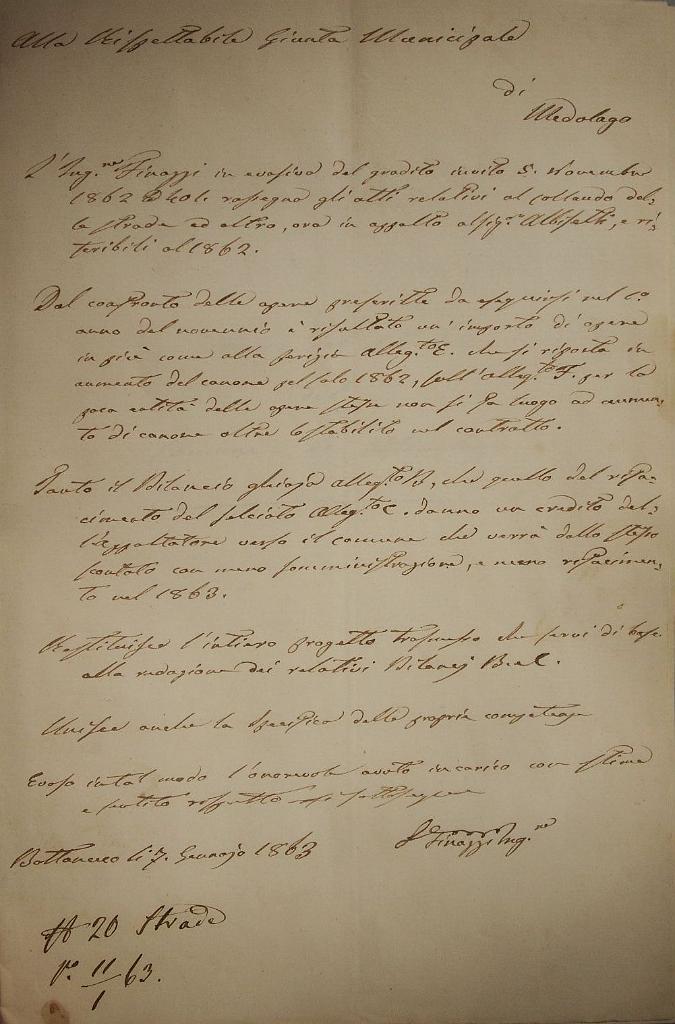 Alla Rispettabile Giunta Municipale
di
Medolago
L'Ing.re Finazzi in evasiva del gradito invito 5. Novembre
1862 rassegna gli atti relativi al collaudo del=
le strade ed altro, ora in appalto al sig.r Albisetti, e ri=
feribili al 1862.
Dal confronto delle opere prescritte da eseguirsi nel 1.o
anno del novennio è risultato un' importo di opere
in più come alla perizia alleg.to E. che si riporta in
aumento del canone pel solo 1862, sull'alleg.to F. per la
poca entità delle opere stesse non si fa luogo ad aumen=
to di canone oltre lo stabilito nel contratto.
Tanto il Bilancio ghiaja alleg.to B, che quello del rifa=
cimento del selciato alleg.to C. danno un credito del=
l'appaltatore verso il comune che verrà dallo stesso
scontato con meno somministrazione, e meno rifacimen=
to nel 1863.
Restituisce l'intiero progetto trasmesso che servì di base
alla redazione dei relativi Bilanci B. e C.
Unisce anche la specifica delle proprie competenze
Evaso in tal modo l'onorevole avuto incarico con stima
e sentito rispetto si sottosegna
Bottanuco li 7. Gennajo 1863
Finazzi Ing.re
N 20 Strade
P.o 11/1 63.